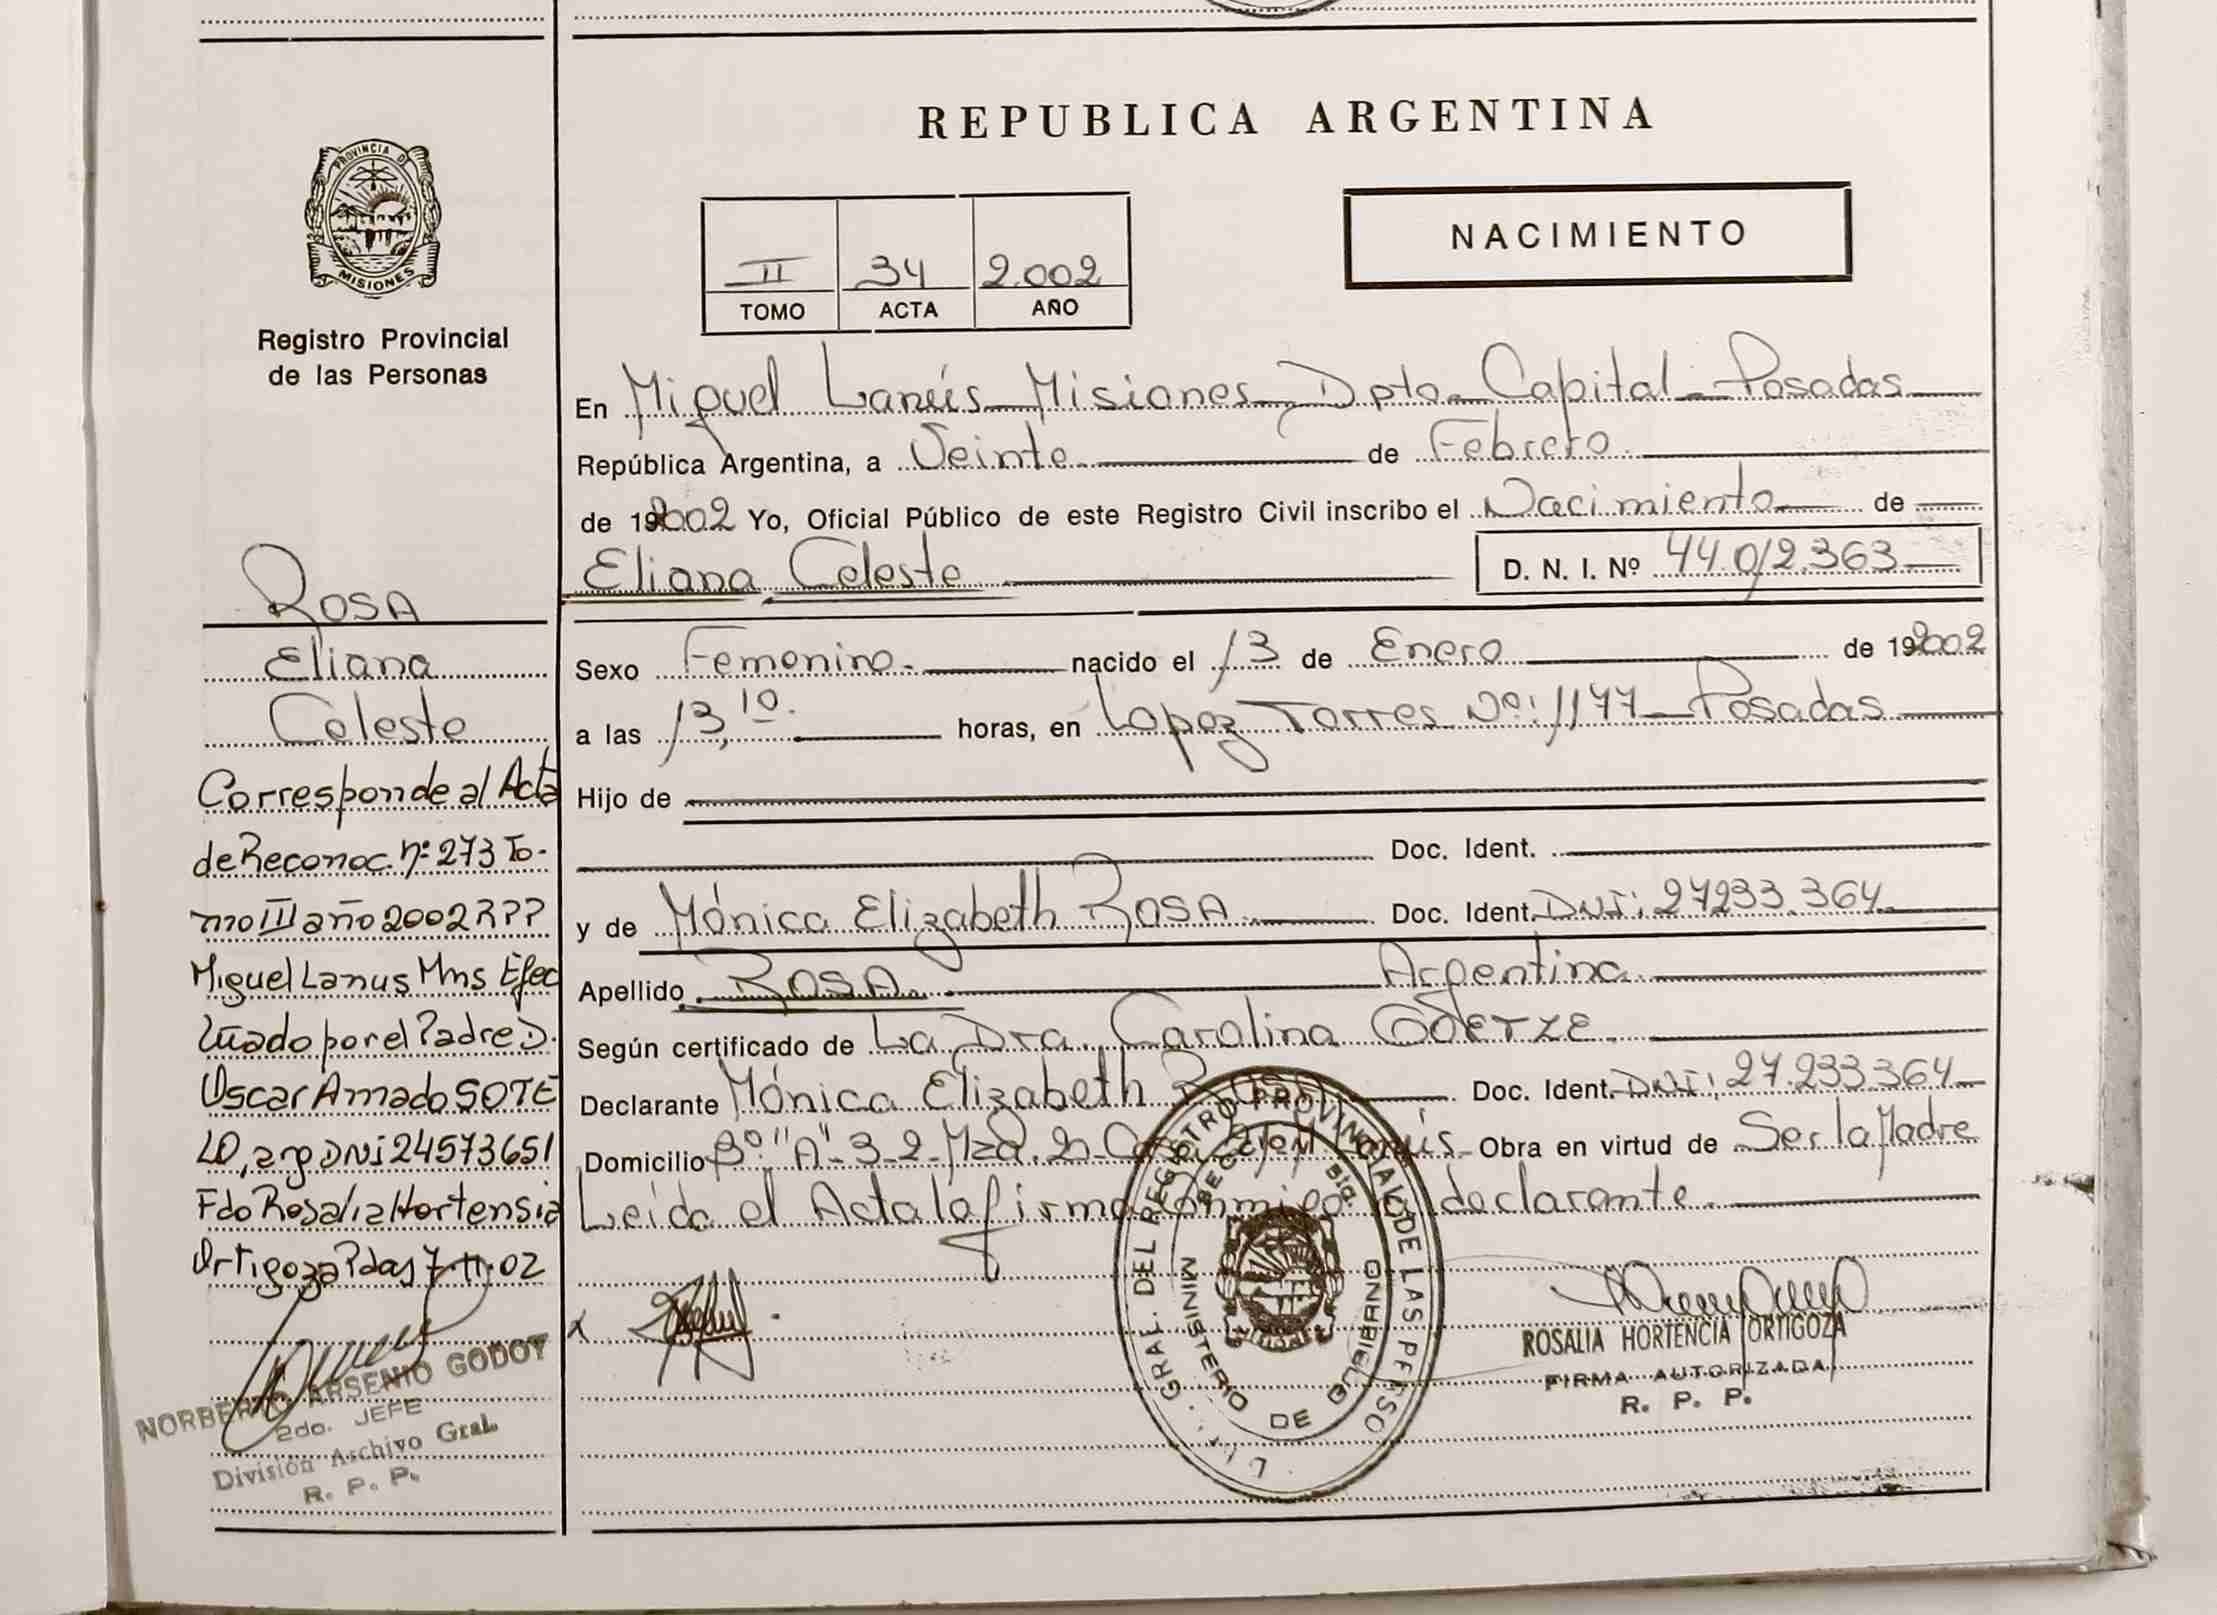 REPUBLICA ARGENTINA
PROVINCIA D
MISIONES
Registro Provincial
de las Personas
II 34 2.002
TOMO ACTA AÑO
NACIMIENTO
En Miguel Lanús Misiones Dpto Capital Posadas
República Argentina, a Veinte de Febrero
de 192002 Yo, Oficial Público de este Registro Civil inscribo el Nacimiento de
Eliana Celeste D. N. I. Nº 44.012.363
Sexo Femenino. nacido el 13 de Enero de 192002
a las 13,10. horas, en Lopez Torres Nº: 1177 Posadas
Hijo de
Doc. Ident.
y de Mónica Elizabeth ROSA Doc. Ident. DNI: 27233.364
Apellido ROSA Argentina
Según certificado de La Dra. Carolina GOERZE
Declarante Mónica Elizabeth Doc. Ident. DNI: 27.233.364
Domicilio Bº "A" 3-2 Mza. Lanús Obra en virtud de Ser la Madre
Leída el Acta la firma conmigo la declarante
ROSA
Eliana
Celeste
Corresponde al Acta
de Reconoc. nº 273 To-
mo III año 2002 RPP
Miguel Lanus Mns Efec
tuado por el Padre D.
Oscar Amado SOTE
LO, arg DNI 24573651
Fdo Rosalia Hortensia
Ortigoza Pdas 7-11-02
NORBERTO ARSENIO GODOY
2do. JEFE
División Archivo Gral.
R. P. P.
GRAL. DEL REGISTRO PROVINCIAL DE LAS PERSO
MINISTERIO DE GOBIERNO
ROSALIA HORTENCIA ORTIGOZA
FIRMA AUTORIZADA
R. P. P.